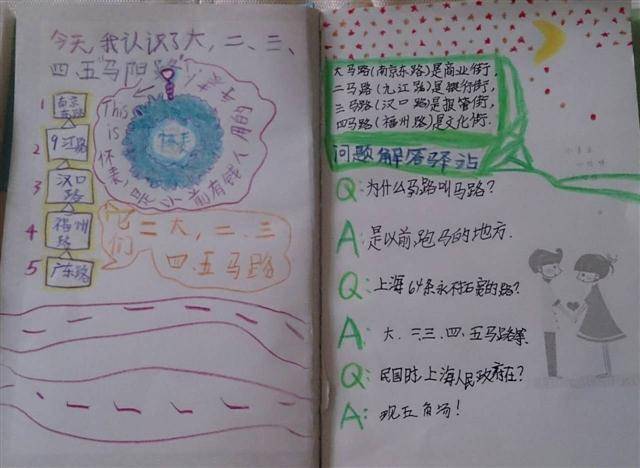 今天,我认识了大,二、三、
四、五“马路”
1 南京
东路
2 九江路
3 汉口
路
4 福州
路
5 广东路
This
is
怀表,是以前有钱人用的
怀表
它
们
二大,二、三
四、五马路
大马路(南京东路)是商业街,
二马路(九江路)是银行街,
三马路(汉口路)是报馆街,
四马路(福州路)是文化街.
问题解答驿站
Q:为什么马路叫马路?
A:是以前,跑马的地方.
Q:上海64条永不拓宽的路?
A:大.二.三.四.五马路等.
Q:民国时,上海人民政府在?
A:现五角场!